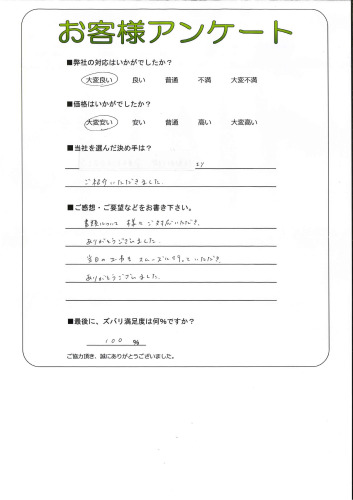 お客様アンケート
■弊社の対応はいかがでしたか？
大変良い 良い 普通 不満 大変不満
■価格はいかがでしたか？
大変安い 安い 普通 高い 大変高い
■当社を選んだ決め手は？
より
ご紹介いただきました。
■ご感想・ご要望などをお書き下さい。
書類については 様に ご対応いただき、
ありがとうございました。
当日の工事も スムーズに行っていただき、
ありがとうございました。
■最後に、ズバリ満足度は何％ですか？
100 ％
ご協力頂き、誠にありがとうございました。